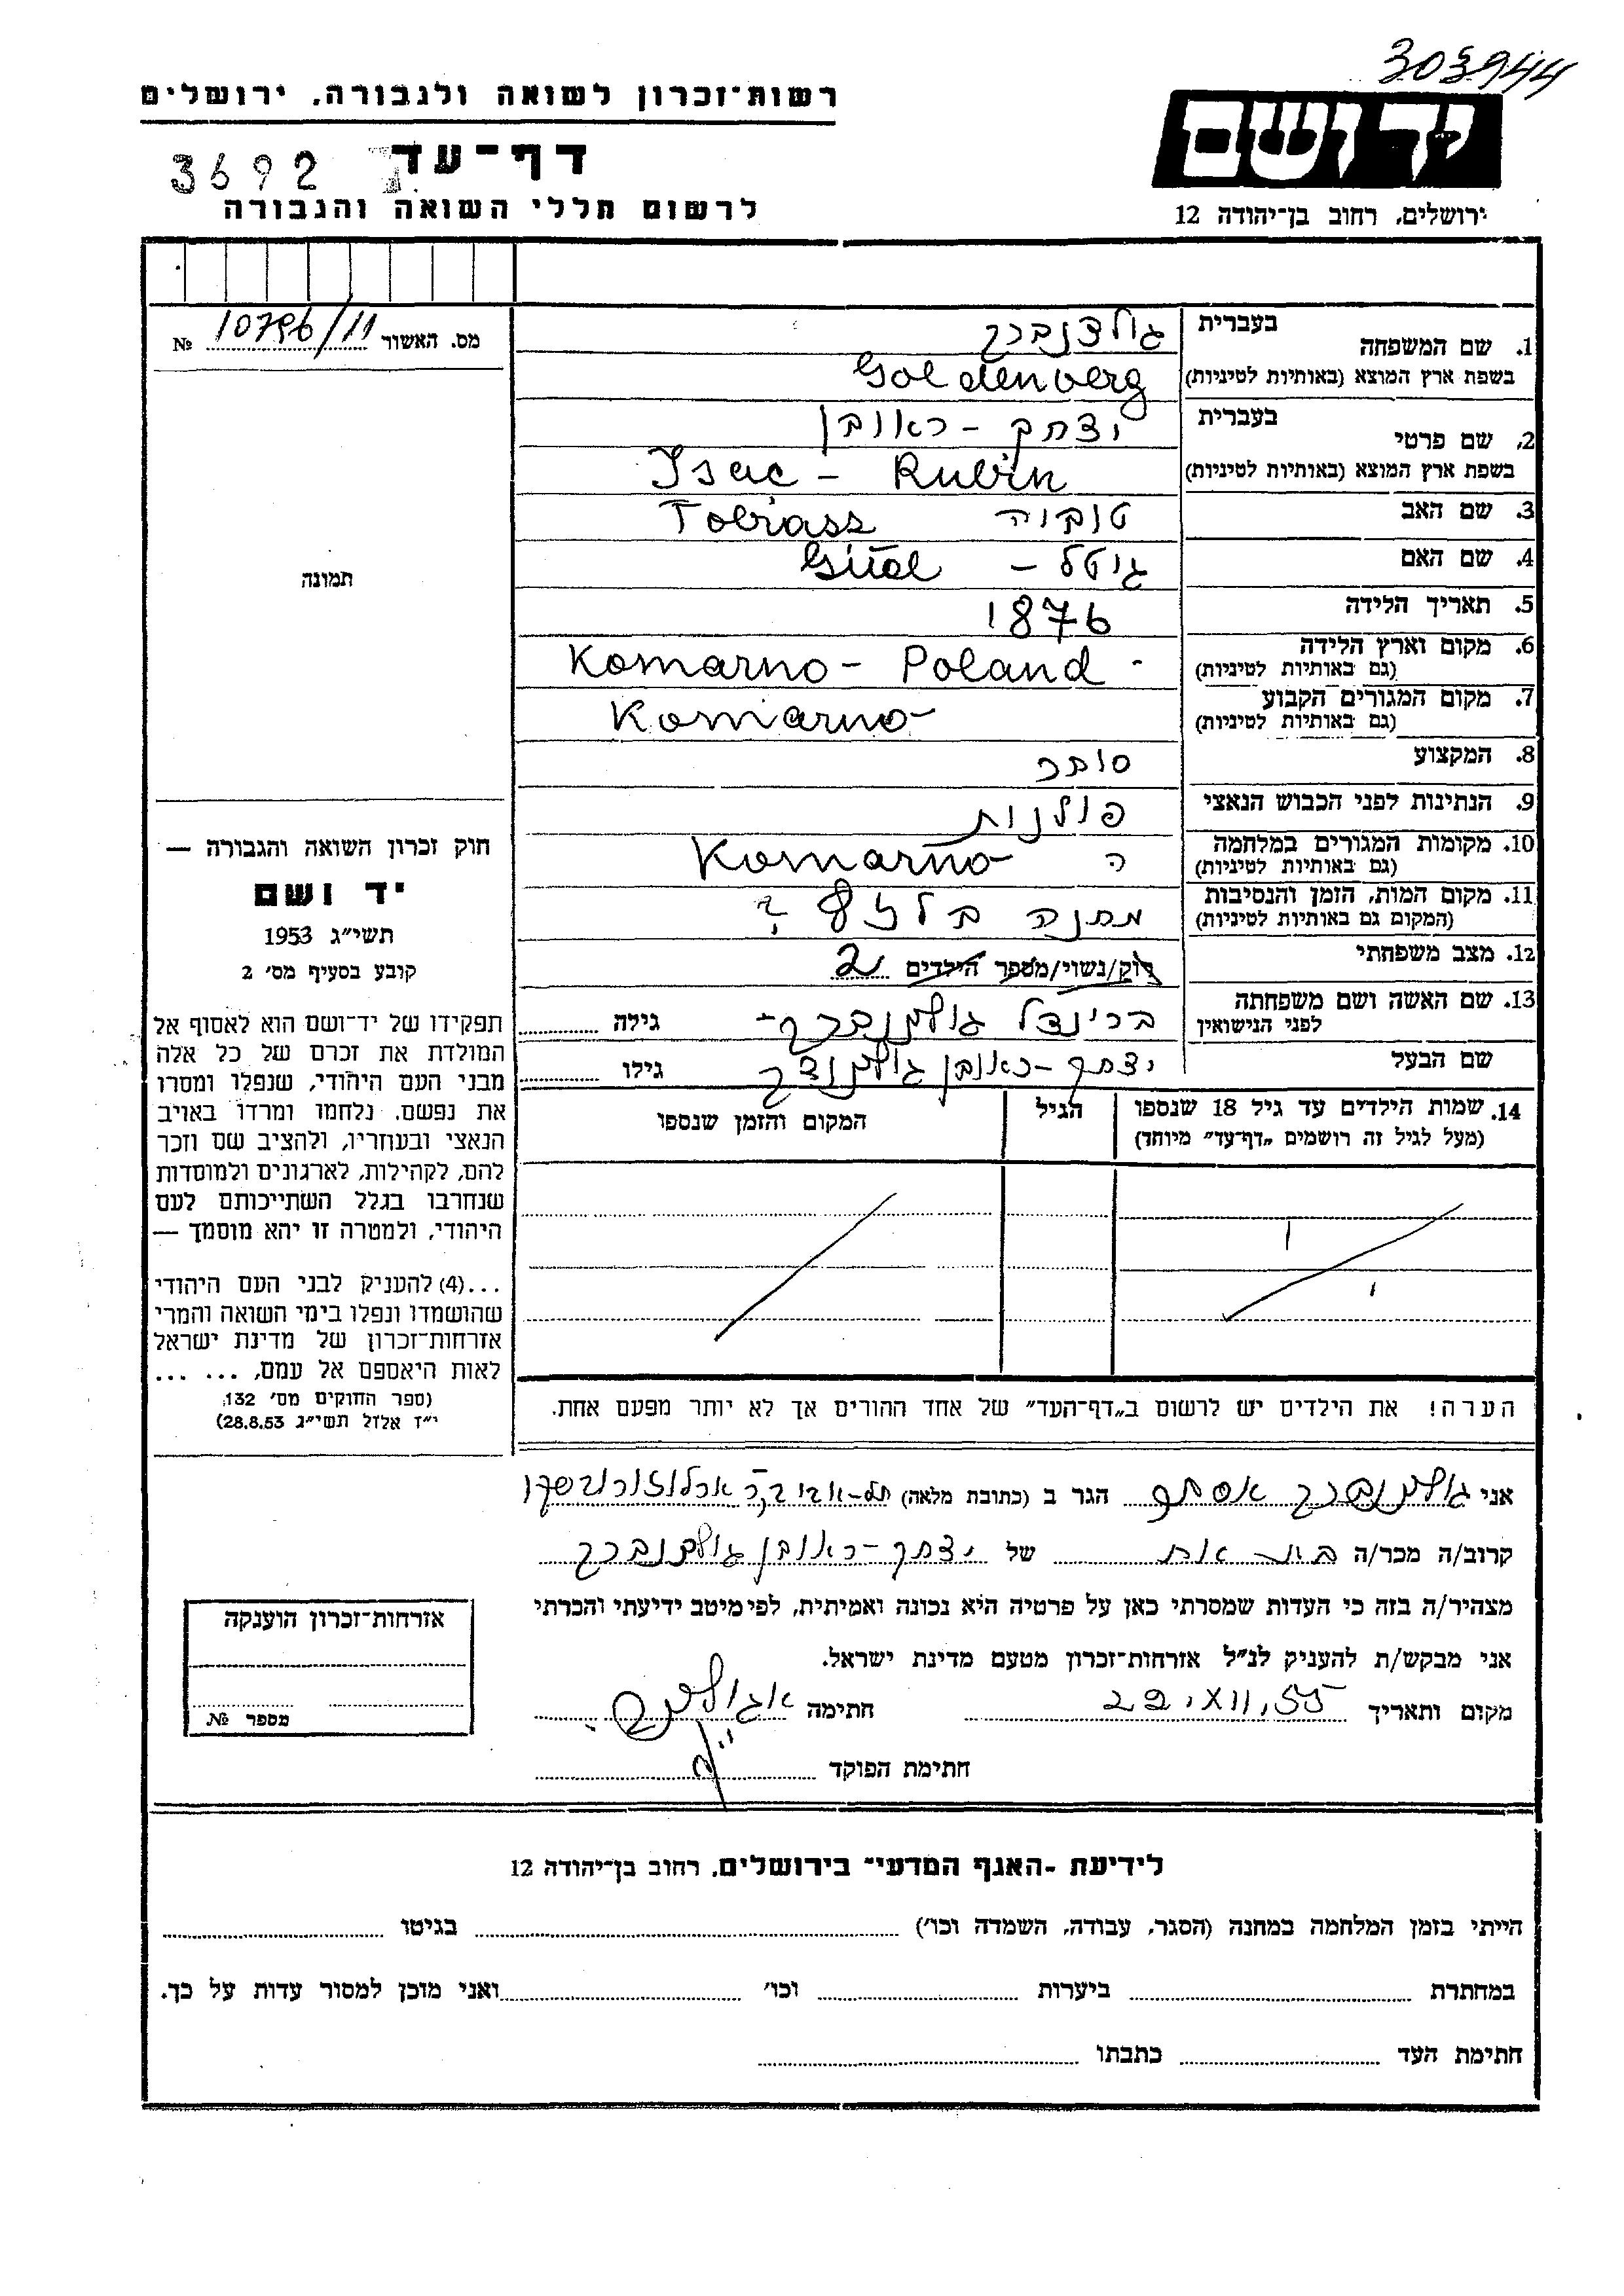 303944
רשות־זכרון לשואה ולגבורה, ירושלים
יד ושם
דף־עד
3692
לרשום חללי השואה והגבורה
ירושלים, רחוב בן־יהודה 12
מס. האשור 10796/11 №
1. שם המשפחה בעברית גולדנברג
בשפת ארץ המוצא (באותיות לטיניות) Goldenberg
2. שם פרטי בעברית יצחק - ראובן
בשפת ארץ המוצא (באותיות לטיניות) Isac - Rubin
3. שם האב טוביה Tobiass
4. שם האם גיטל - Gitel
5. תאריך הלידה 1876
6. מקום וארץ הלידה (גם באותיות לטיניות) Komarno - Poland -
7. מקום המגורים הקבוע (גם באותיות לטיניות) Komarno -
8. המקצוע סוחר
9. הנתינות לפני הכבוש הנאצי פולנית
10. מקומות המגורים במלחמה (גם באותיות לטיניות) Komarno
11. מקום המות, הזמן והנסיבות (המקום גם באותיות לטיניות) מחנה בלזץ ?
12. מצב משפחתי רוק/נשוי/מספר הילדים 2
13. שם האשה ושם משפחתה לפני הנישואין גולדנברג - גילה
שם הבעל יצחק - ראובן גולדנברג גילו
14. שמות הילדים עד גיל 18 שנספו (מעל לגיל זה רושמים „דף־עד" מיוחד)
הגיל
המקום והזמן שנספו
הערה! את הילדים יש לרשום ב„דף־העד" של אחד ההורים אך לא יותר מפעם אחת.
תמונה
חוק זכרון השואה והגבורה —
יד ושם
תשי"ג 1953
קובע בסעיף מס' 2
תפקידו של יד־ושם הוא לאסוף אל
המולדת את זכרם של כל אלה
מבני העם היהודי, שנפלו ומסרו
את נפשם, נלחמו ומרדו באויב
הנאצי ובעוזריו, ולהציב שם וזכר
להם, לקהילות, לארגונים ולמוסדות
שנחרבו בגלל השתייכותם לעם
היהודי, ולמטרה זו יהא מוסמך —
...(4) להעניק לבני העם היהודי
שהושמדו ונפלו בימי השואה והמרי
אזרחות־זכרון של מדינת ישראל
לאות היאספם אל עמם, ... ...
(ספר החוקים מס' 132,
י"ז אלול תשי"ג 28.8.53)
אני גולדנברג הגר ב (כתובת מלאה) תל-אביב
קרוב/ה מכר/ה של יצחק - ראובן גולדנברג
מצהיר/ה בזה כי העדות שמסרתי כאן על פרטיה היא נכונה ואמיתית, לפי מיטב ידיעתי והכרתי
אני מבקש/ת להעניק לנ"ל אזרחות־זכרון מטעם מדינת ישראל.
מקום ותאריך 22.XII.55 חתימה
חתימת הפוקד
אזרחות־זכרון הוענקה
מספר №
לידיעת -האגף המדעי־ בירושלים, רחוב בן־יהודה 12
הייתי בזמן המלחמה במחנה (הסגר, עבודה, השמדה וכו') בגיטו
במחתרת ביערות וכו' ואני מוכן למסור עדות על כך.
חתימת העד כתבתו